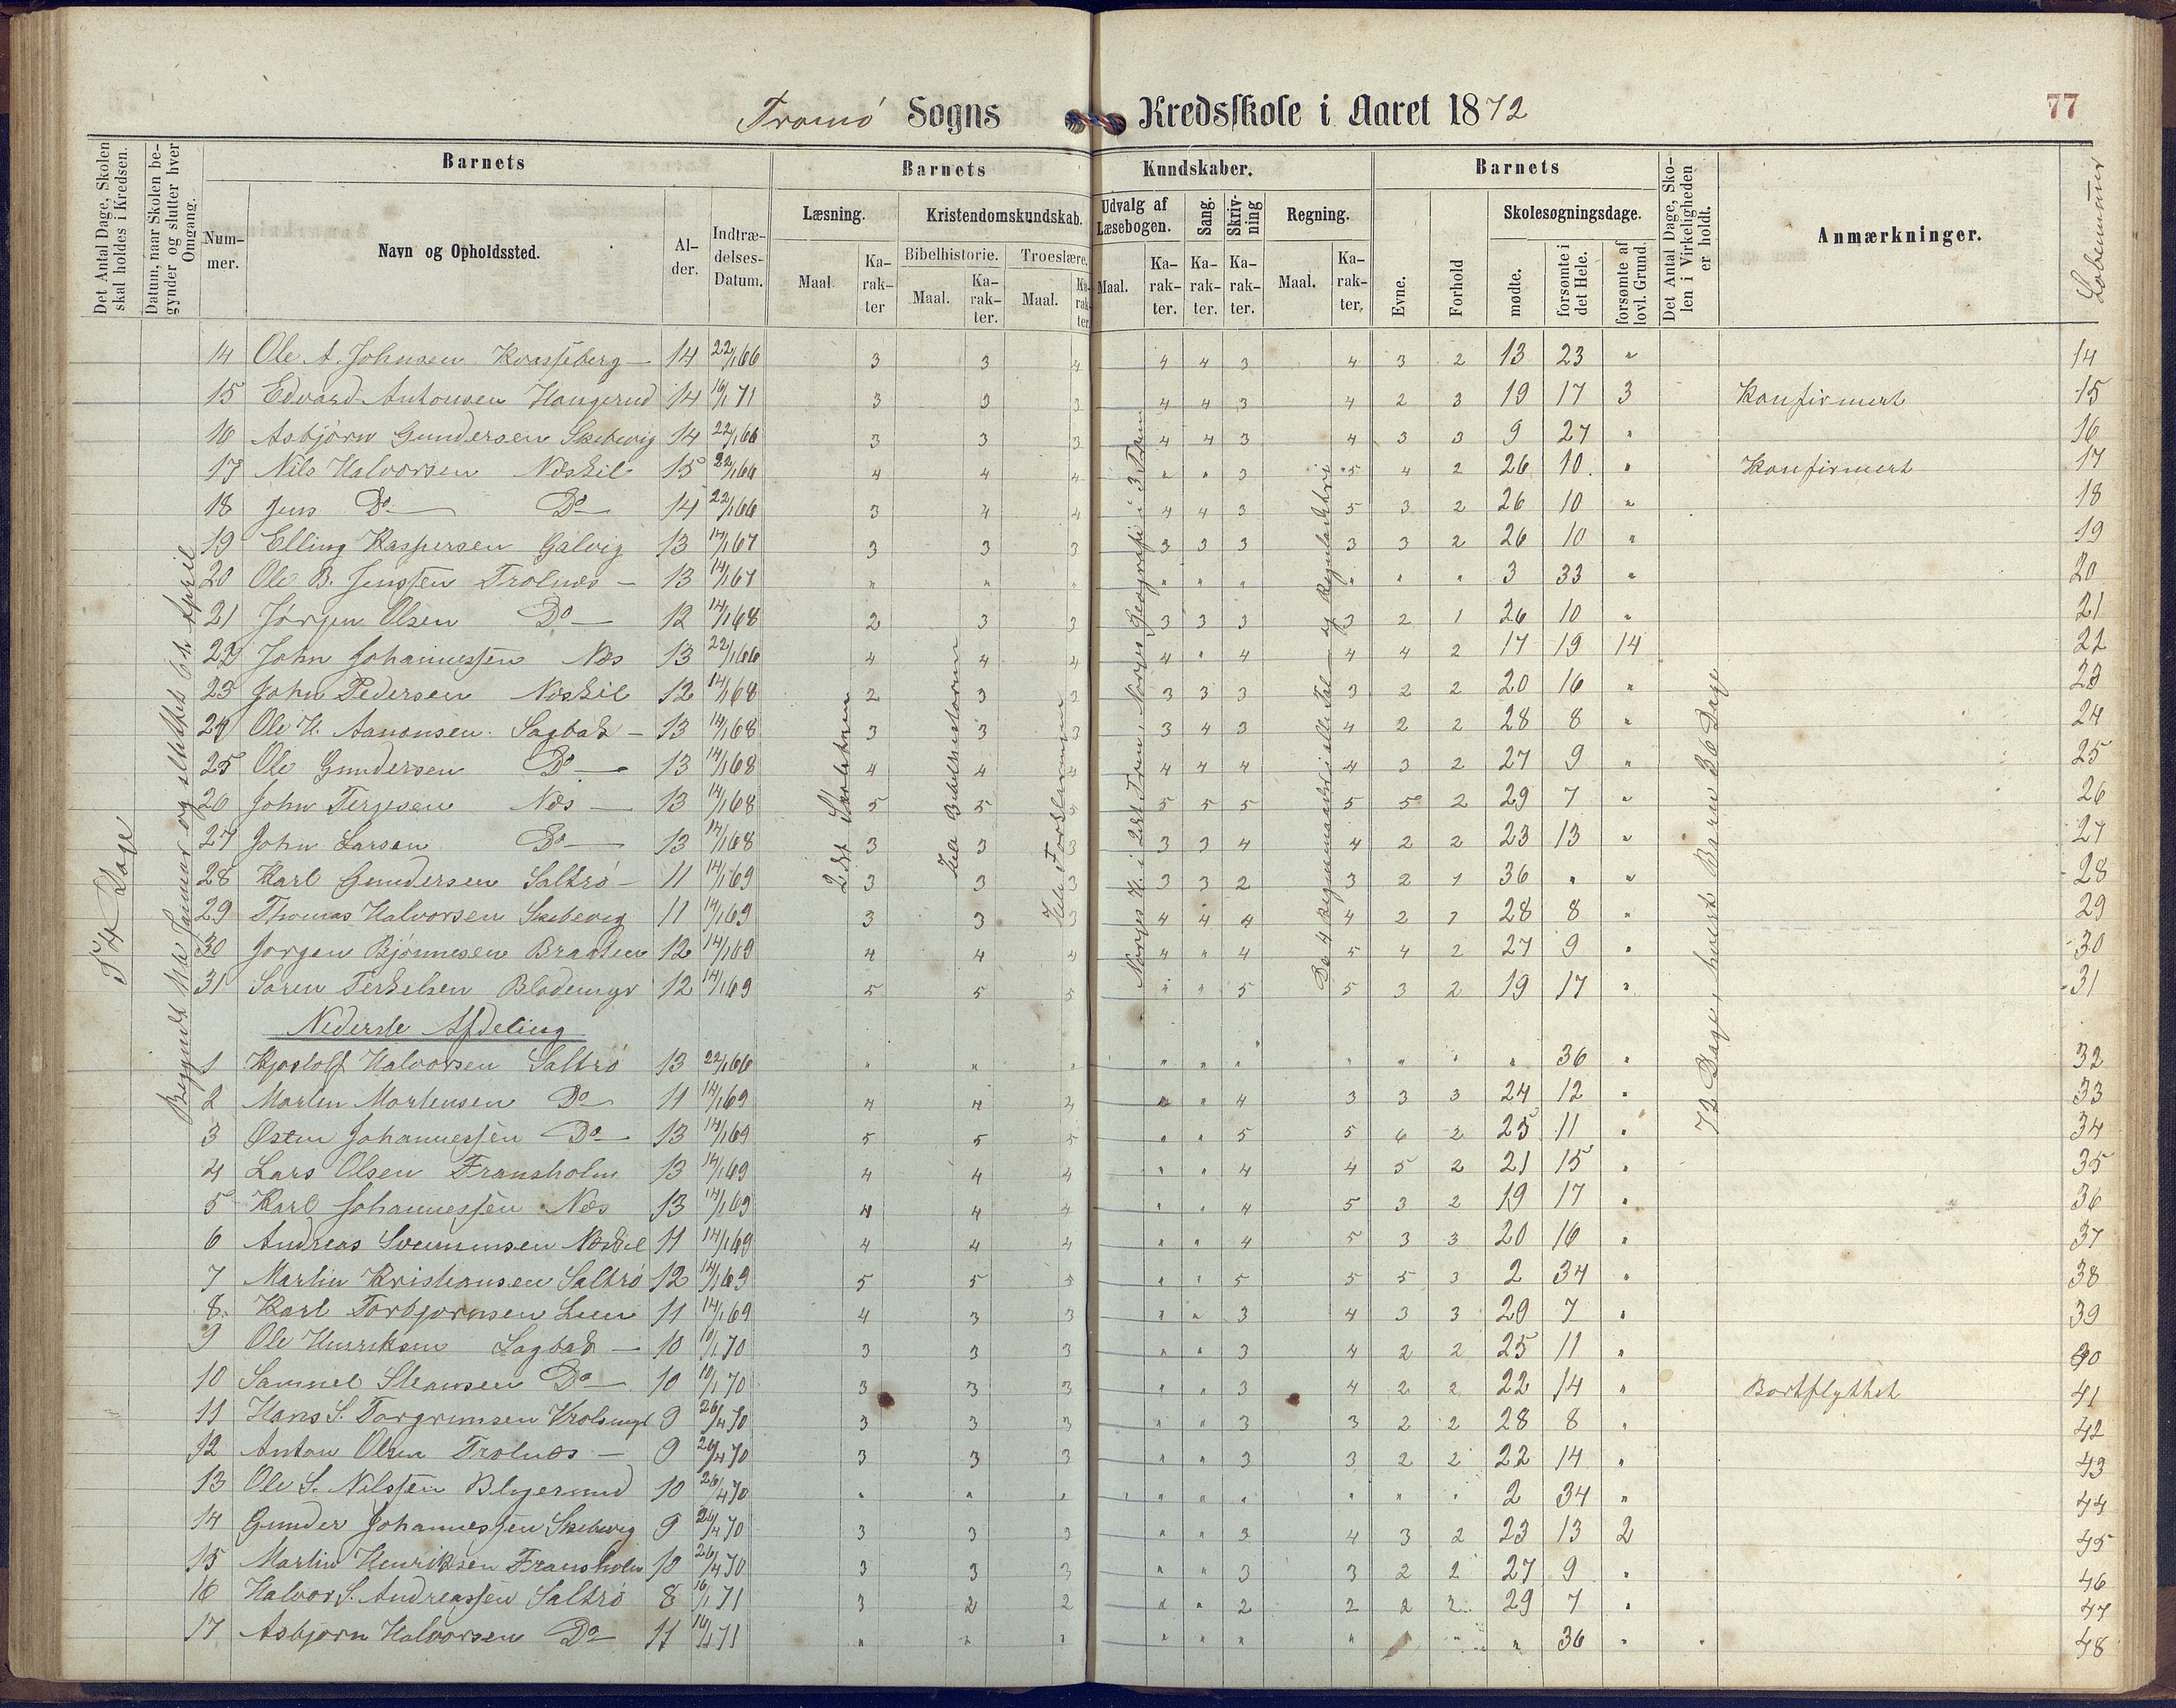 Tromö Sogns Kredsskole i Aaret 1872
77
Det Antal Dage, Skolen skal holdes i Kredsen.
Datum, naar Skolen begynder og slutter hver Omgang.
Barnets
Nummer.
Navn og Opholdssted.
Alder.
Indtrædelses-Datum.
Barnets Kundskaber.
Læsning.
Maal.
Karakter
Kristendomskundskab.
Bibelhistorie.
Maal.
Karakter.
Troeslære.
Maal.
Karakter.
Udvalg af Læsebogen.
Maal.
Karakter.
Sang.
Karakter.
Skrivning
Karakter.
Regning.
Maal.
Karakter.
Barnets
Evne.
Forhold
Skolesøgningsdage.
mødte.
forsømte i det Hele.
forsømte af lovl. Grund.
Det Antal Dage, Skolen i Virkeligheden er holdt.
Anmærkninger.
Løbenummer
14 Ole A. Johnsen Kvasseberg — 14 22/1 66 3 3 4 4 4 3 4 3 2 13 23 " 14
15 Edvard Antonsen Haugerud 14 16/1 71 3 3 3 4 4 3 4 2 3 19 17 3 Konfirmert 15
16 Asbjörn Gundersen Skebevig 14 22/1 66 3 3 3 4 4 3 4 3 3 9 27 " 16
17 Nils Halvorsen Næskil 15 22/1 66 4 4 4 " " 3 5 4 2 26 10 " Konfirmert 17
18 Jens Do — Do — 14 22/1 66 3 4 4 4 4 3 5 3 2 26 10 " 18
19 Elling Kaspersen Galvig 13 14/1 67 3 3 3 3 3 3 3 3 2 26 10 " 19
20 Ole B. Jenssen Trolnæs — 13 14/1 67 " " " " " " " " " 3 33 " 20
21 Jörgen Olsen Do — 12 14/1 68 2 3 3 3 3 3 3 2 1 26 10 " 21
22 John Johannessen Næs 13 22/1 66 4 4 4 4 " 4 4 4 2 17 19 14 22
23 John Pedersen Næskil 12 14/1 68 2 3 3 3 3 3 3 2 2 20 16 " 23
24 Ole H. Aanonsen Sagbak — 13 14/1 68 3 3 3 3 4 3 4 2 2 28 8 " 24
25 Ole Gundersen Do — 13 14/1 68 4 4 4 4 4 4 4 3 2 27 9 " 25
26 John Terjesen Næs — 13 14/1 68 5 5 5 5 5 5 5 5 2 29 7 " 26
27 John Larsen Do — 13 14/1 68 3 3 3 3 3 4 4 2 2 23 13 " 27
28 Karl Gundersen Saltrö — 11 14/1 69 3 3 3 3 3 2 3 2 1 36 " " 28
29 Thomas Halvorsen Skebevig 11 14/1 69 3 3 3 4 4 4 4 2 1 28 8 " 29
30 Jörgen Bjönnesen Braaten 12 14/1 69 4 4 4 4 " 4 5 4 2 27 9 " 30
31 Sören Terkelsen Blodemyr 12 14/1 69 5 5 5 " " 5 5 3 2 19 17 " 31
Nederste Afdeling
1 Kjostolf Halvorsen Saltrö 13 22/1 66 " " " " " " " " " " 36 " 32
2 Morten Mortensen Do — 11 14/1 69 4 4 4 " " 4 3 3 3 24 12 " 33
3 Johannessen Do — 13 14/1 69 5 5 5 " " 5 5 6 2 25 11 " 34
4 Lars Olsen Fransholm 13 14/1 69 4 4 4 " " 4 4 5 2 21 15 " 35
5 Karl Johannessen Næs 13 14/1 69 4 4 4 " " 4 5 3 2 19 17 " 36
6 Andreas Næskil 11 14/1 69 4 4 4 " " 4 5 3 3 20 16 " 37
7 Martin Kristiansen Saltrö 12 14/1 69 5 5 5 " " 5 5 5 3 2 34 " 38
8 Karl Torbjörnsen Lien 11 14/1 69 4 3 3 " " 3 4 3 3 29 7 " 39
9 Ole Henriksen Sagbak — 10 10/1 70 3 3 3 " " 3 4 2 2 25 11 " 40
10 Samuel Do — 10 10/1 70 3 3 3 " " 3 4 2 2 22 14 " Bortflyttet 41
11 Hans S. Torgrimsen 9 26/4 70 3 3 3 " " 3 3 2 2 28 8 " 42
12 Anton Olsen Trolnæs — 9 26/4 70 3 3 3 " " 3 3 2 2 22 14 " 43
13 Ole S. Nilssen 10 26/4 70 " " " " " " " " " 2 34 " 44
14 Gunder Johannessen Skebevig 9 26/4 70 3 3 3 " " 3 4 3 2 23 13 2 45
15 Martin Henriksen Fransholm 10 26/4 70 3 3 3 " " 3 3 2 2 27 9 " 46
16 Halvor S. Andreassen Saltrö 8 16/1 71 3 2 2 " " 2 2 2 2 29 7 " 47
17 Asbjörn Halvorsen Do — 11 16/1 71 " " " " " " " " " 36 " 48
Dage
Begyndt Januar og sluttet 6te April
2det Skoletrin
Hele Bibelhistorien
Hele Forklaringen
Norges H. i 2det Trin, Norges Geografi i 3 Trin
De 4 Regningsmaader i hele Tal — og Reguladetri
72 Dage, hvert Barn 36 Dage